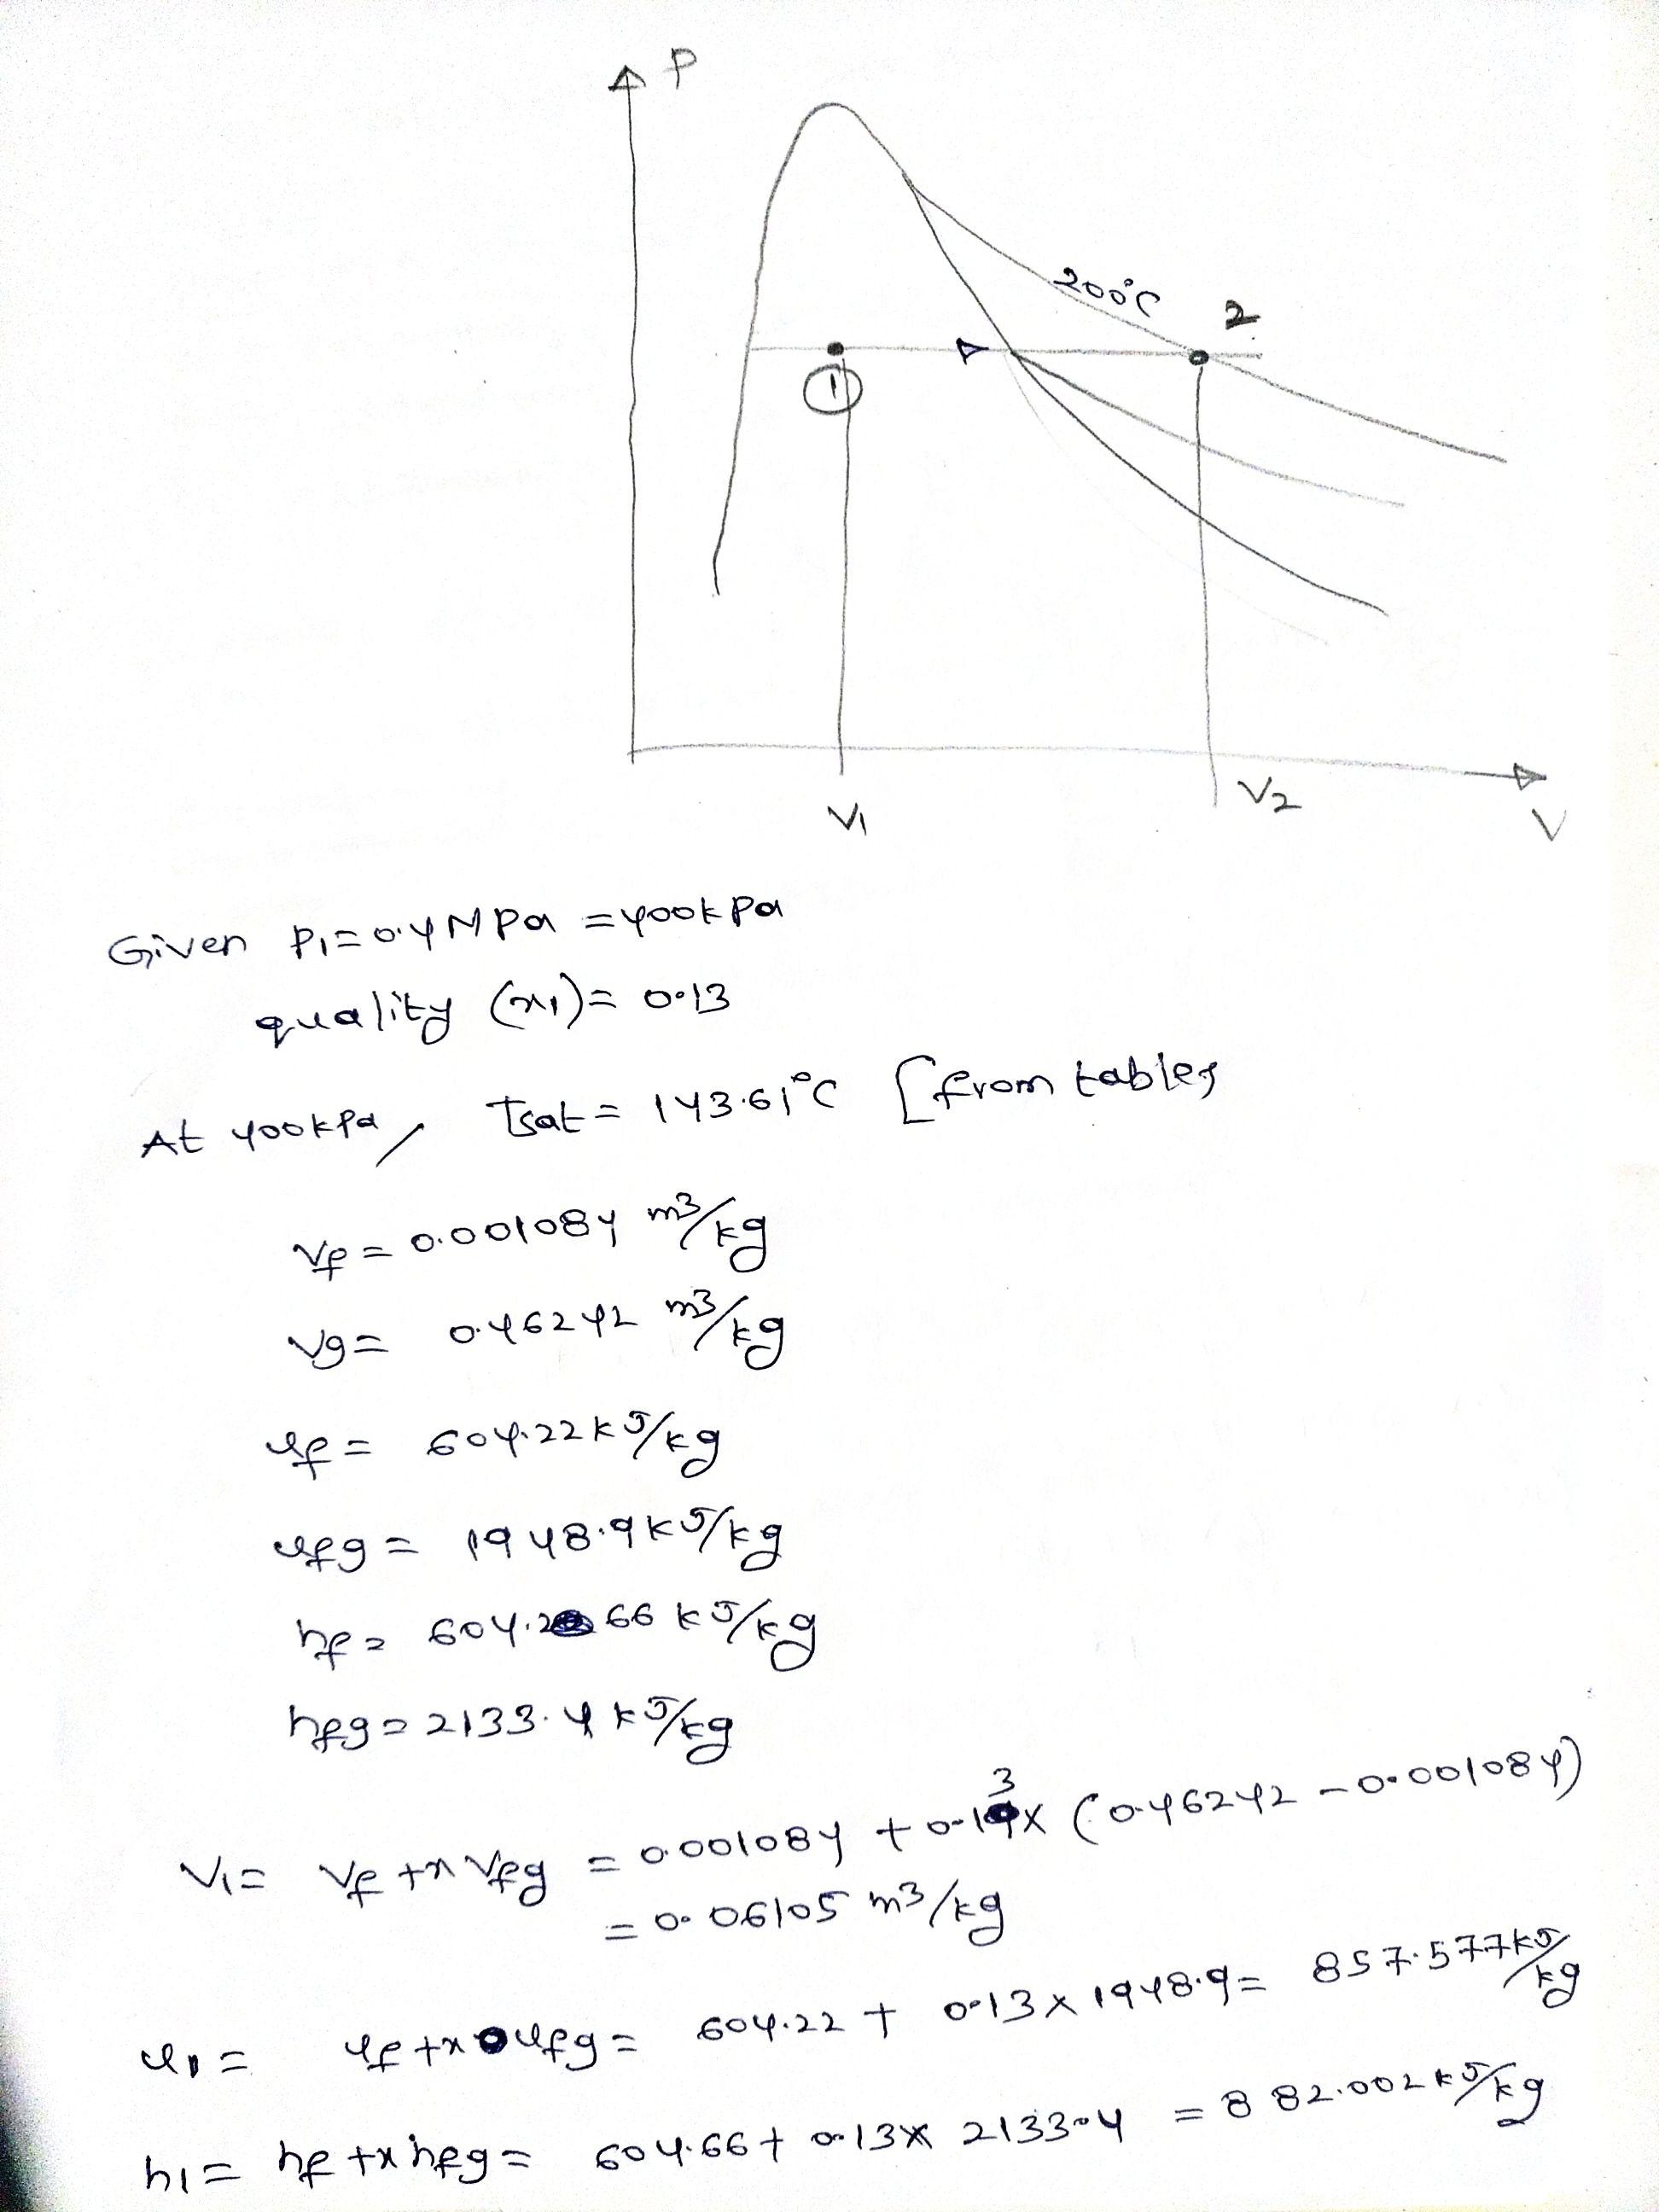 P
200°C
2
1
V1
V2
V
Given P1 = 0.4 MPa = 400kPa
quality (x1) = 0.13
At 400kPa, Tsat = 143.61°C [from tables
vf = 0.001084 m3/kg
vg = 0.46242 m3/kg
uf = 604.22 kJ/kg
ufg = 1948.9 kJ/kg
hf = 604.66 kJ/kg
hfg = 2133.4 kJ/kg
V1 = vf + x vfg = 0.001084 + 0.13 x (0.46242 - 0.001084)
= 0.06105 m3/kg
u1 = uf + x ufg = 604.22 + 0.13 x 1948.9 = 857.577 kJ/kg
h1 = hf + x hfg = 604.66 + 0.13 x 2133.4 = 882.002 kJ/kg